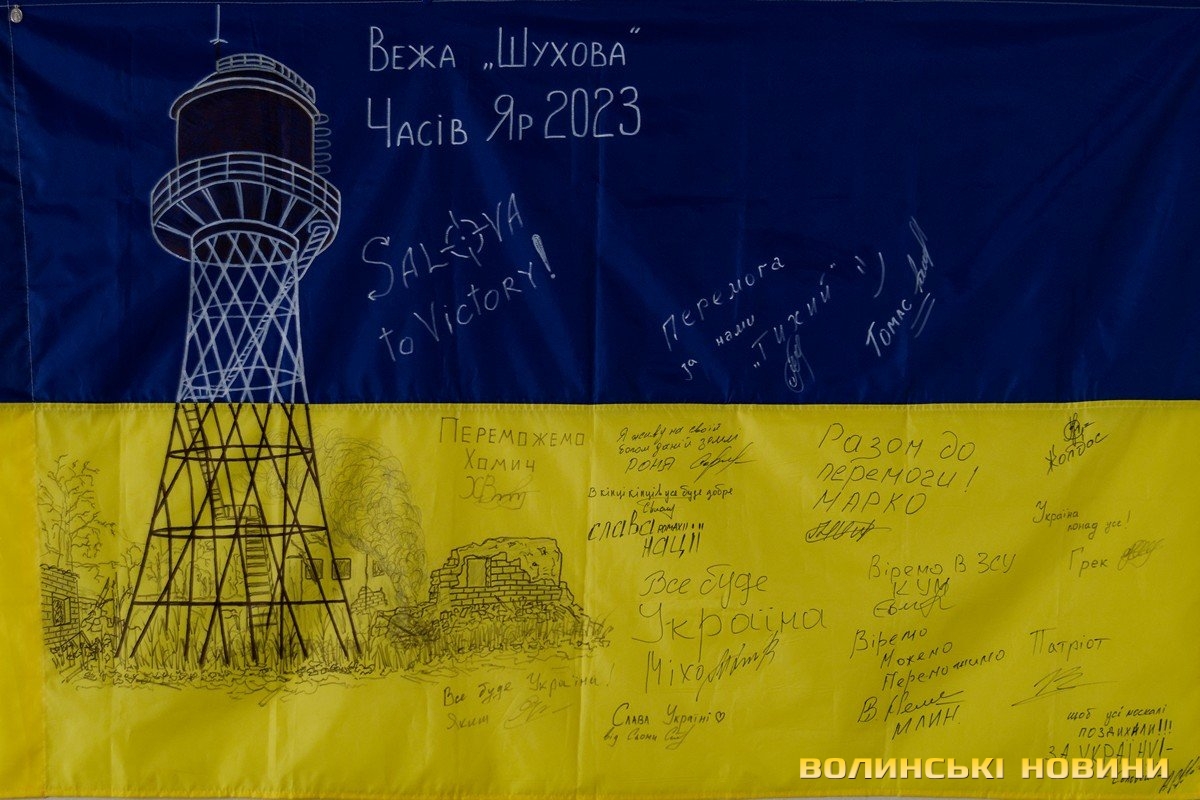 Вежа „Шухова“
Часів Яр 2023
SALOVA
to Victory!
Перемога
за нами
"Тихий"
Томас
Переможемо
Хомич
Я живу на своїй
Богом даній землі
РОНЯ
В кінці кінців усе буде добре
Слава
НАЦІЇ
Все буде
Україна
Міхо
Слава Україні
від Сьоми
Все буде Україна!
Яким
Разом до
перемоги!
МАРКО
Віремо в ЗСУ
КУМ
Віремо
Можемо
Переможимо
МЛИН
Жолдос
Україна
понад усе!
Грек
Патріот
щоб усі москалі
ПОЗДИХАЛИ!!!
ЗА УКРАЇНУ!
ВОЛИНСЬКІ НОВИНИ